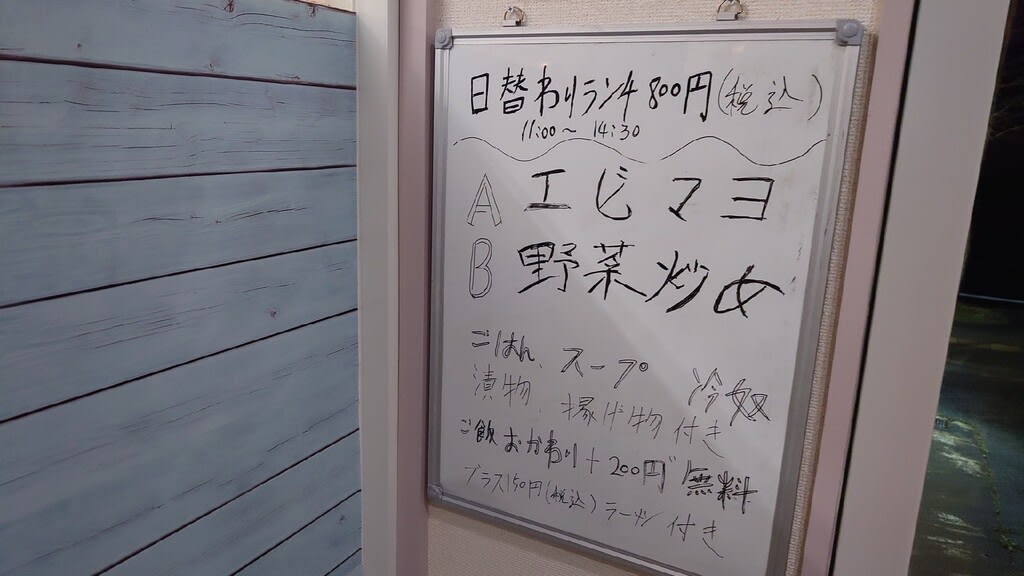 日替わりランチ 800円(税込)
11:00〜14:30
A エビマヨ
B 野菜炒め
ごはん、スープ 冷奴
漬物、揚げ物 付き
ご飯おかわり+200円 無料
プラス150円(税込)ラーメン付き